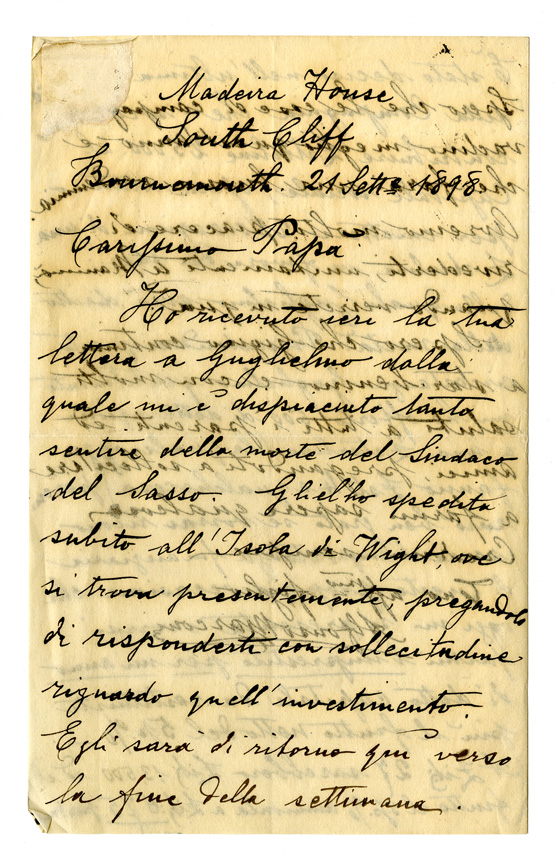 Madeira House
South Cliff
Bournemouth. 21 Sett.e 1898
Carissimo Papa
Ho ricevuto ieri la tua
lettera a Guglielmo dalla
quale mi è dispiaciuto tanto
sentire della morte del Sindaco
del Sasso. Gliel'ho spedita
subito all'Isola di Wight, ove
si trova presentemente, pregandolo
di risponderti con sollecitudine
riguardo quell'investimento.
Egli sarà di ritorno quì verso
la fine della settimana.